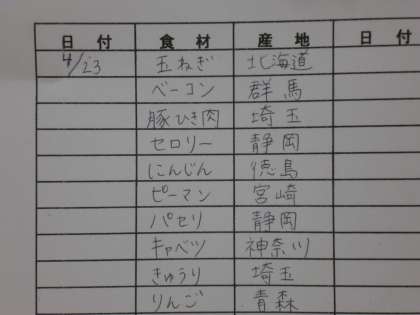 日付 食材 産地 日付
4/23 玉ねぎ 北海道
ベーコン 群馬
豚ひき肉 埼玉
セロリー 静岡
にんじん 徳島
ピーマン 宮崎
パセリ 静岡
キャベツ 神奈川
きゅうり 埼玉
りんご 青森